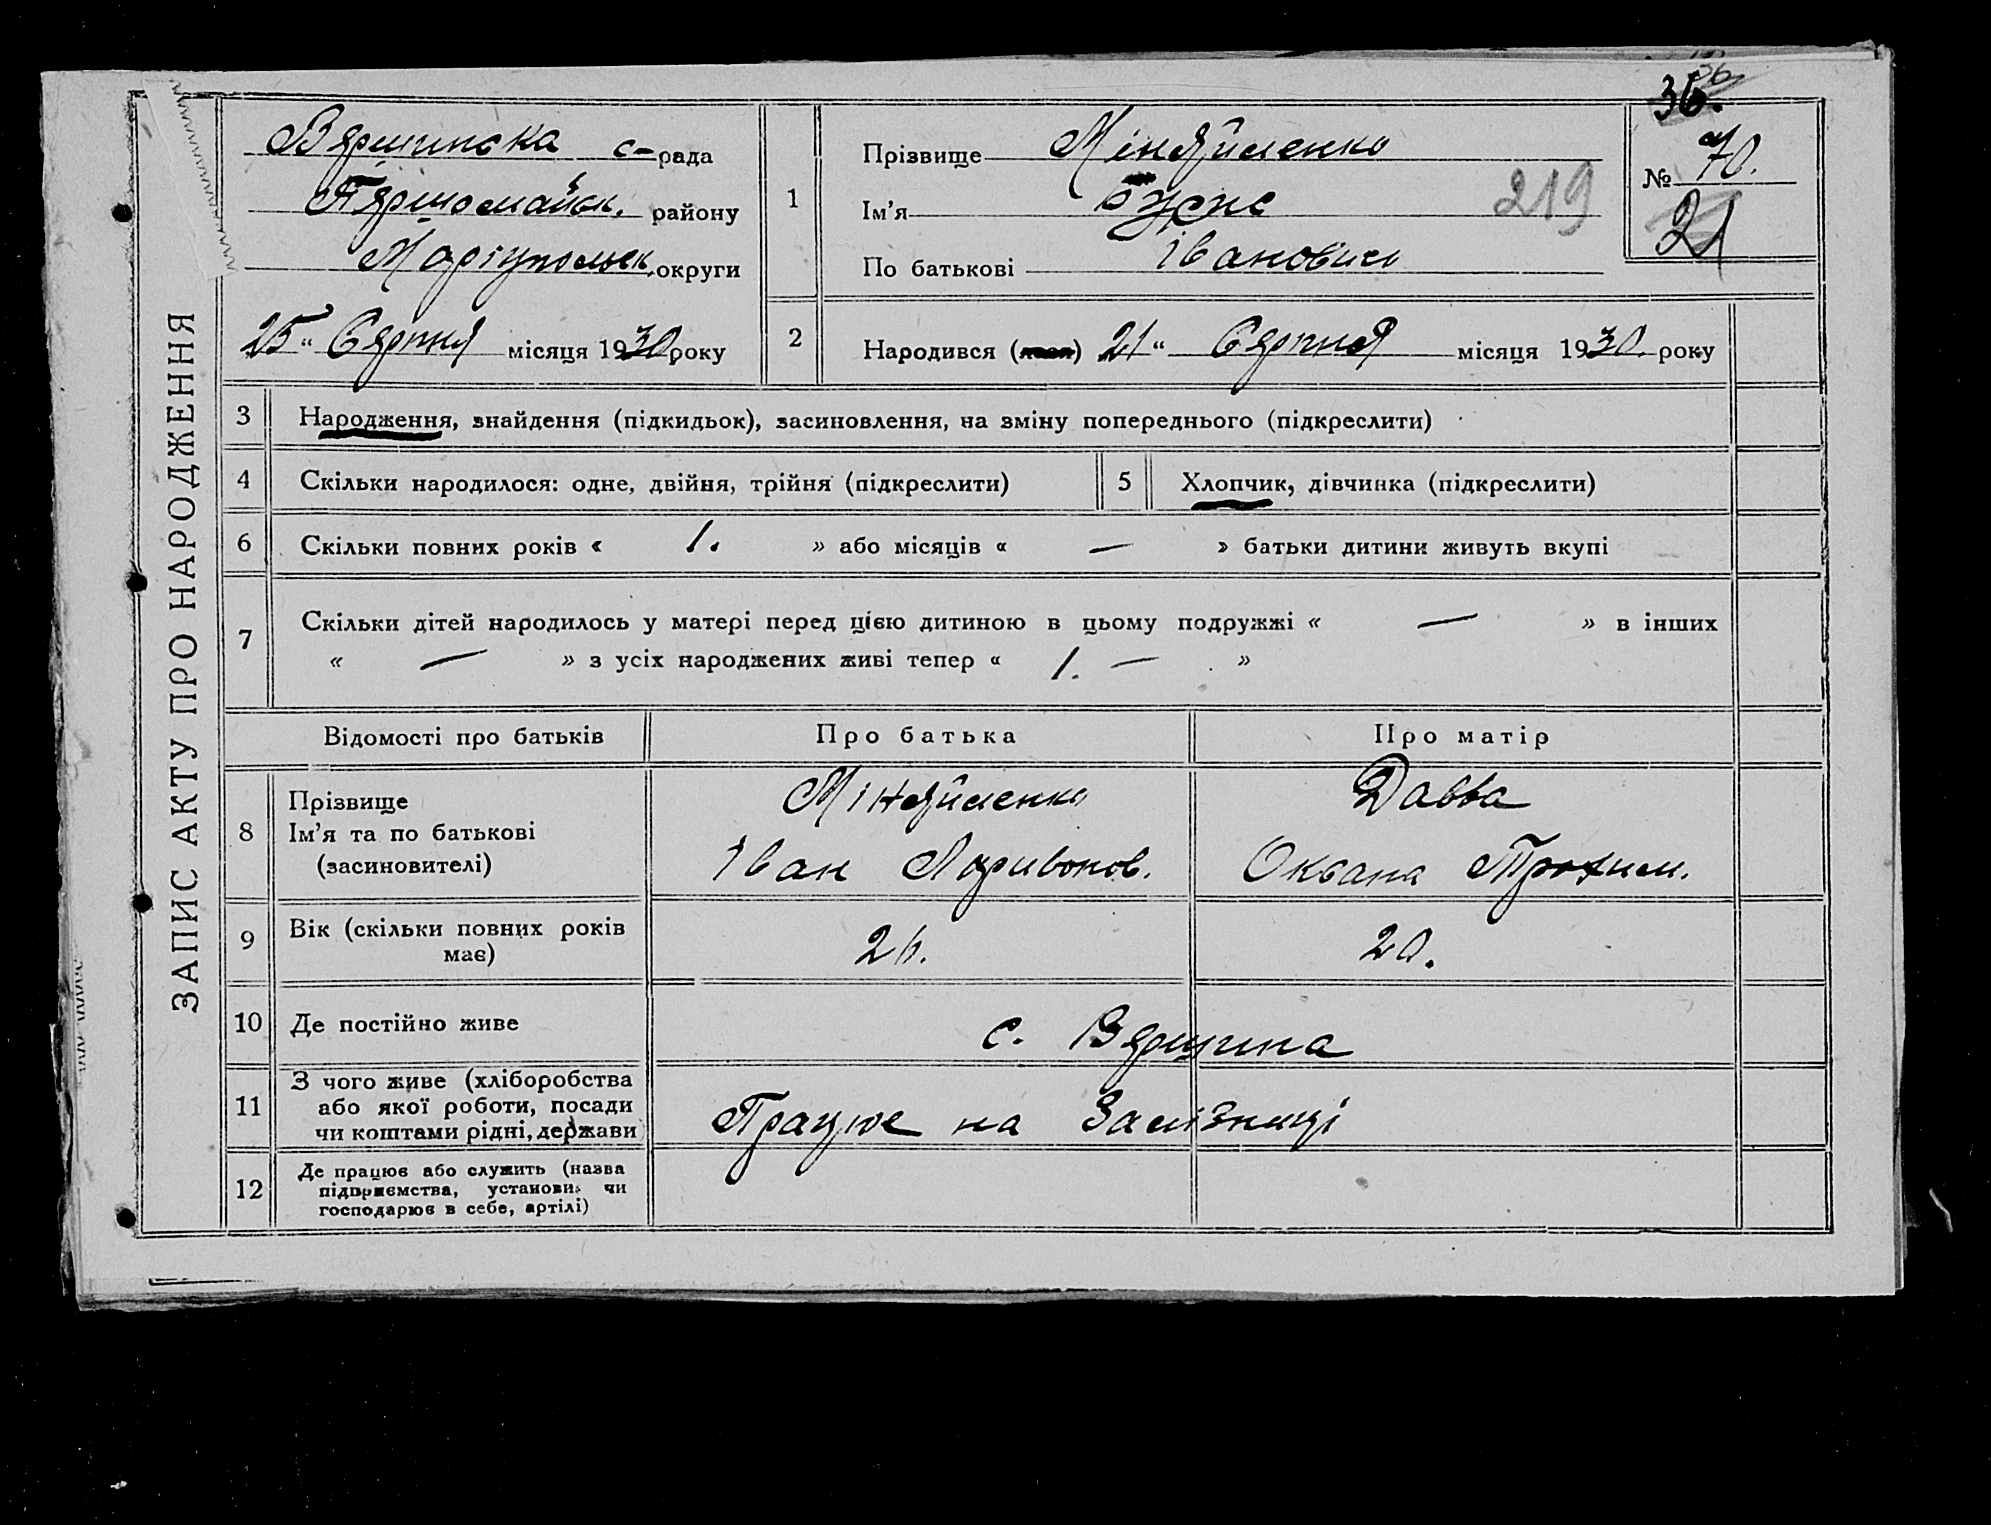 36.
Вершинска с-рада
Першомайськ. району
Маріупольськ. округи
25 " Серпня місяця 1930 року
1
Прізвище Міняйленко
Ім'я
По батькові Іванович
219
№ 70.
21
2
Народився ( ) 21 " Серпня місяця 1930 року
ЗАПИС АКТУ ПРО НАРОДЖЕННЯ
3 Народження, знайдення (підкидьок), засиновлення, на зміну попереднього (підкреслити)
4 Скільки народилося: одне, двійня, трійня (підкреслити) 5 Хлопчик, дівчинка (підкреслити)
6 Скільки повних років « 1. » або місяців « — » батьки дитини живуть вкупі
7 Скільки дітей народилось у матері перед цією дитиною в цьому подружжі « — » в інших
« — » з усіх народжених живі тепер « 1. — »
Відомості про батьків Про батька Про матір
8 Прізвище
Ім'я та по батькові
(засиновителі)
Міняйленко
Іван Ларивонов.
Давва
Оксана Трохим.
9 Вік (скільки повних років
має)
26. 20.
10 Де постійно живе с. Вершина
11 З чого живе (хліборобства
або якої роботи, посади
чи коштами рідні, держави)
Працює на Залізниці
12 Де працює або служить (назва
підприємства, установи, чи
господарює в себе, артілі)